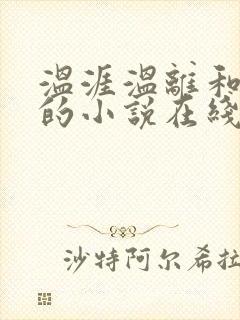 温涯温離和
的小说在綫
沙特阿尔希拉